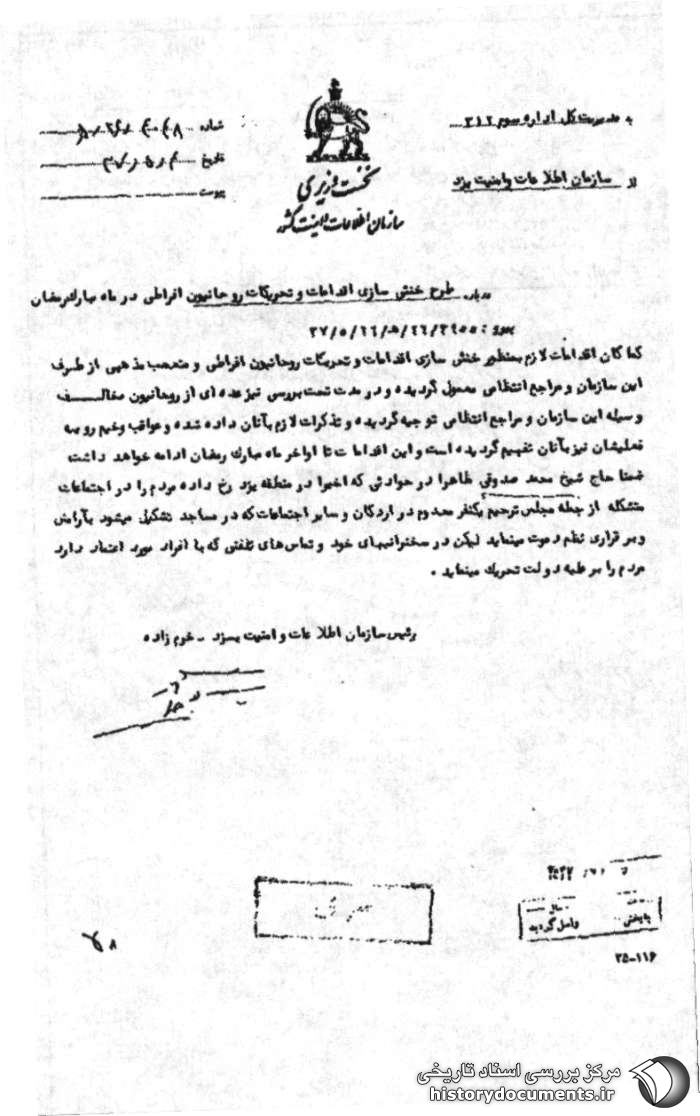 به مدیریت کل اداره سوم ۳۱۲
از سازمان اطلاعات وامنیت یزد
شماره
تاریخ
پیوست
نخست وزیری
سازمان اطلاعات و امنیت کشور
درباره طرح خنثی سازی اقدامات و تحریکات روحانیون افراطی در ماه مبارک رمضان
پیرو :
کماکان اقدامات لازم بمنظور خنثی سازی اقدامات و تحریکات روحانیون افراطی و متعصب مذهبی از طرف
این سازمان و مراجع انتظامی معمول گردیده و در مدت تحت بررسی نیز عده ای از روحانیون مخالف
وسیله این سازمان و مراجع انتظامی توجیه گردیده و تذکرات لازم بآنان داده شده و عواقب وخیم رویه
فعلیشان نیز بآنان تفهیم گردیده است و این اقدامات تا اواخر ماه مبارک رمضان ادامه خواهد داشت
ضمنا حاج شیخ محمد صدوقی ظاهرا در حوادثی که اخیرا در منطقه یزد رخ داده مردم را در اجتماعات
متشکله از جمله مجلس ترحیم یکنفر معدوم در اردکان و سایر اجتماعات که در مساجد تشکیل میشود بآرامش
و بر قراری نظم دعوت مینماید لیکن در سخنرانیهای خود و تماس های تلفنی که با افراد مورد اعتماد دارد
مردم را بر علیه دولت تحریک مینماید .
رئیس سازمان اطلاعات و امنیت یزد - خرم زاده
به بخش
واصل گردید
۲۵-۱۱۶
۸
مرکز بررسی اسناد تاریخی
historydocuments.ir